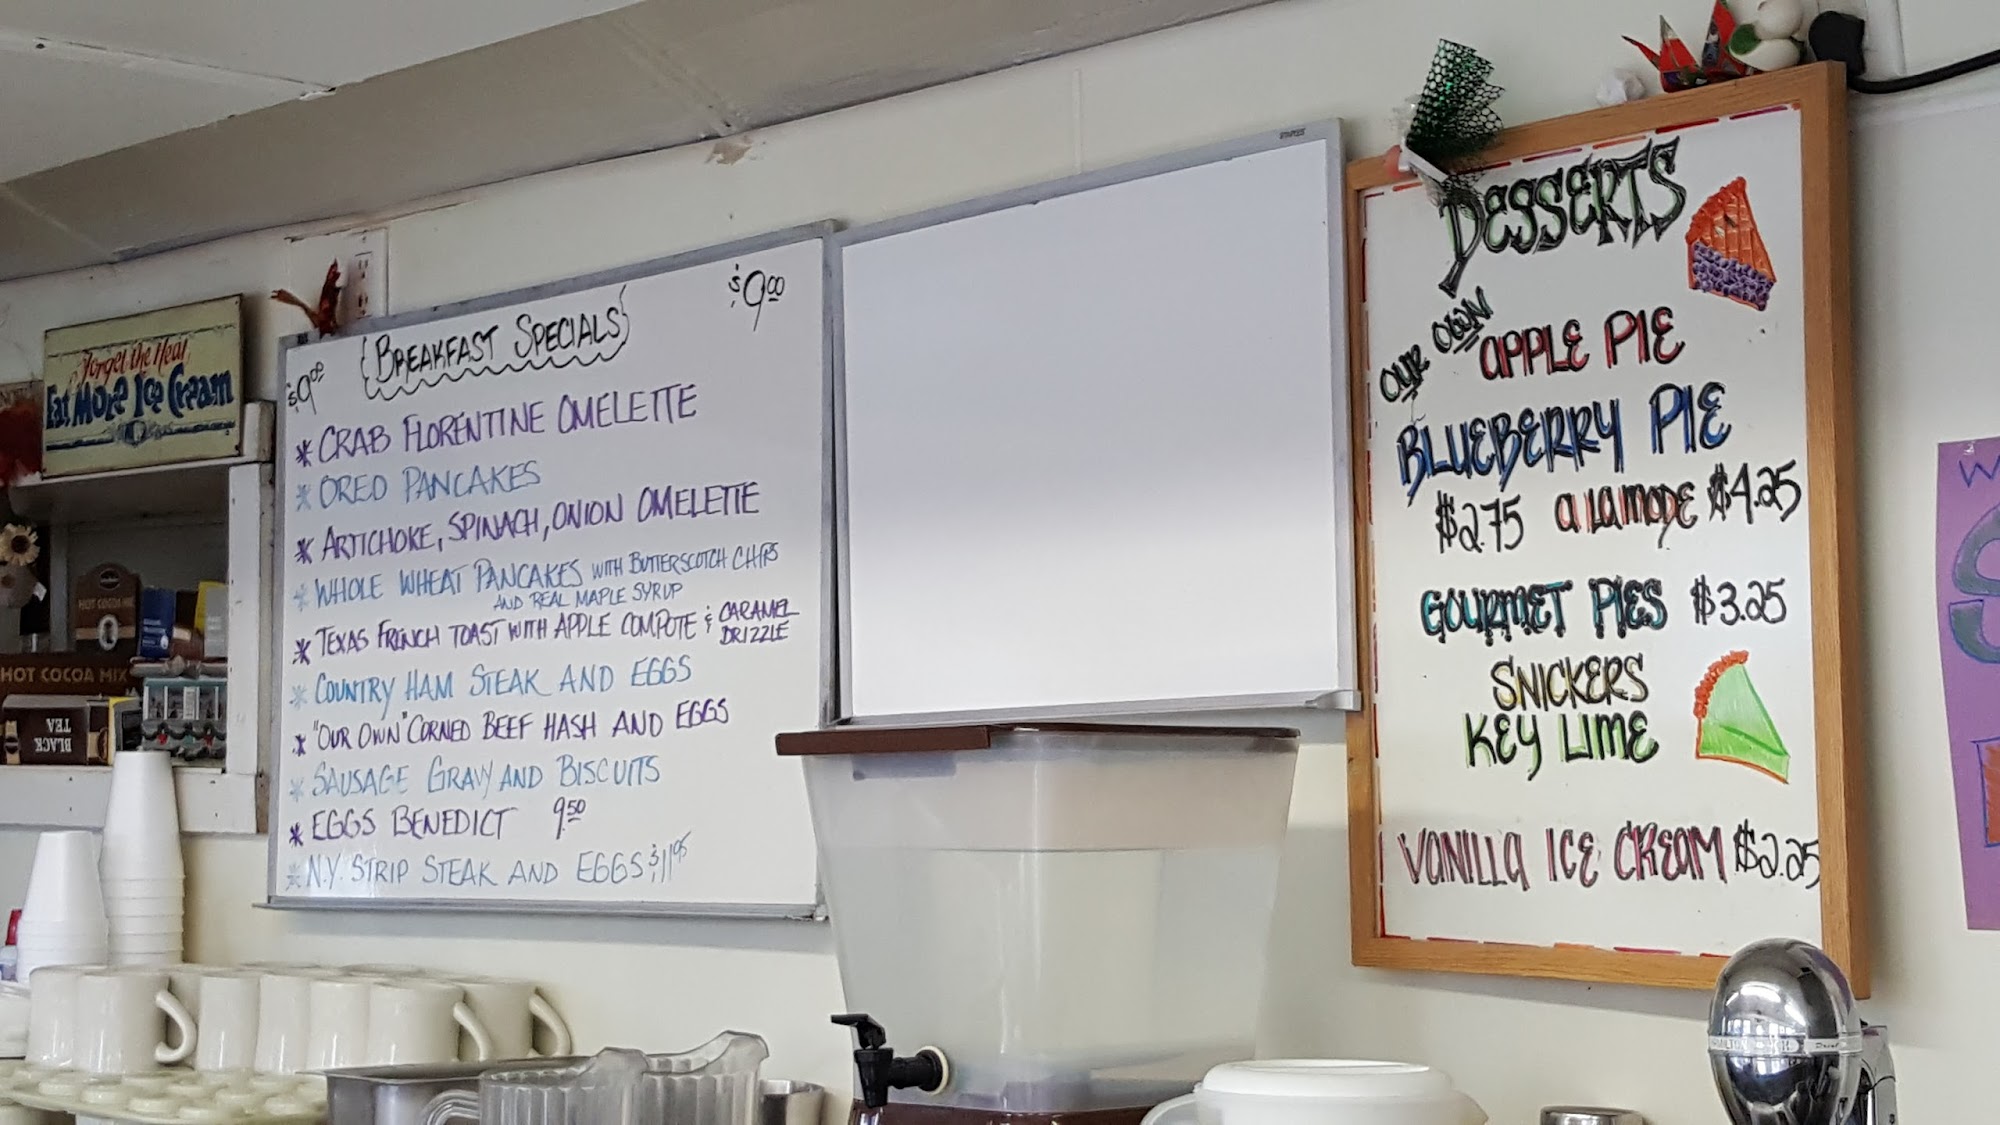 Forget the Heat
Eat More Ice Cream
HOT COCOA MIX
HOT COCOA MIX
BLACK TEA
$9.00
BREAKFAST SPECIALS
$9.00
* CRAB FLORENTINE OMELETTE
* OREO PANCAKES
* ARTICHOKE, SPINACH, ONION OMELETTE
* WHOLE WHEAT PANCAKES WITH BUTTERSCOTCH CHIPS
AND REAL MAPLE SYRUP
* TEXAS FRENCH TOAST WITH APPLE COMPOTE & CARAMEL
DRIZZLE
* COUNTRY HAM STEAK AND EGGS
* "OUR OWN" CORNED BEEF HASH AND EGGS
* SAUSAGE GRAVY AND BISCUITS
* EGGS BENEDICT 9.50
* N.Y. STRIP STEAK AND EGGS $11.95
STAPLES
DESSERTS
OUR OWN
APPLE PIE
BLUEBERRY PIE
$2.75 a LA MODE $4.25
GOURMET PIES $3.25
SNICKERS
KEY LIME
VANILLA ICE CREAM $2.25
W
S